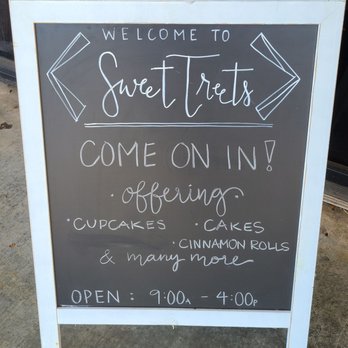 WELCOME TO
Sweet Treets
COME ON IN!
· offering ·
· CUPCAKES · CAKES
· CINNAMON ROLLS
& many more
OPEN : 9:00A - 4:00P